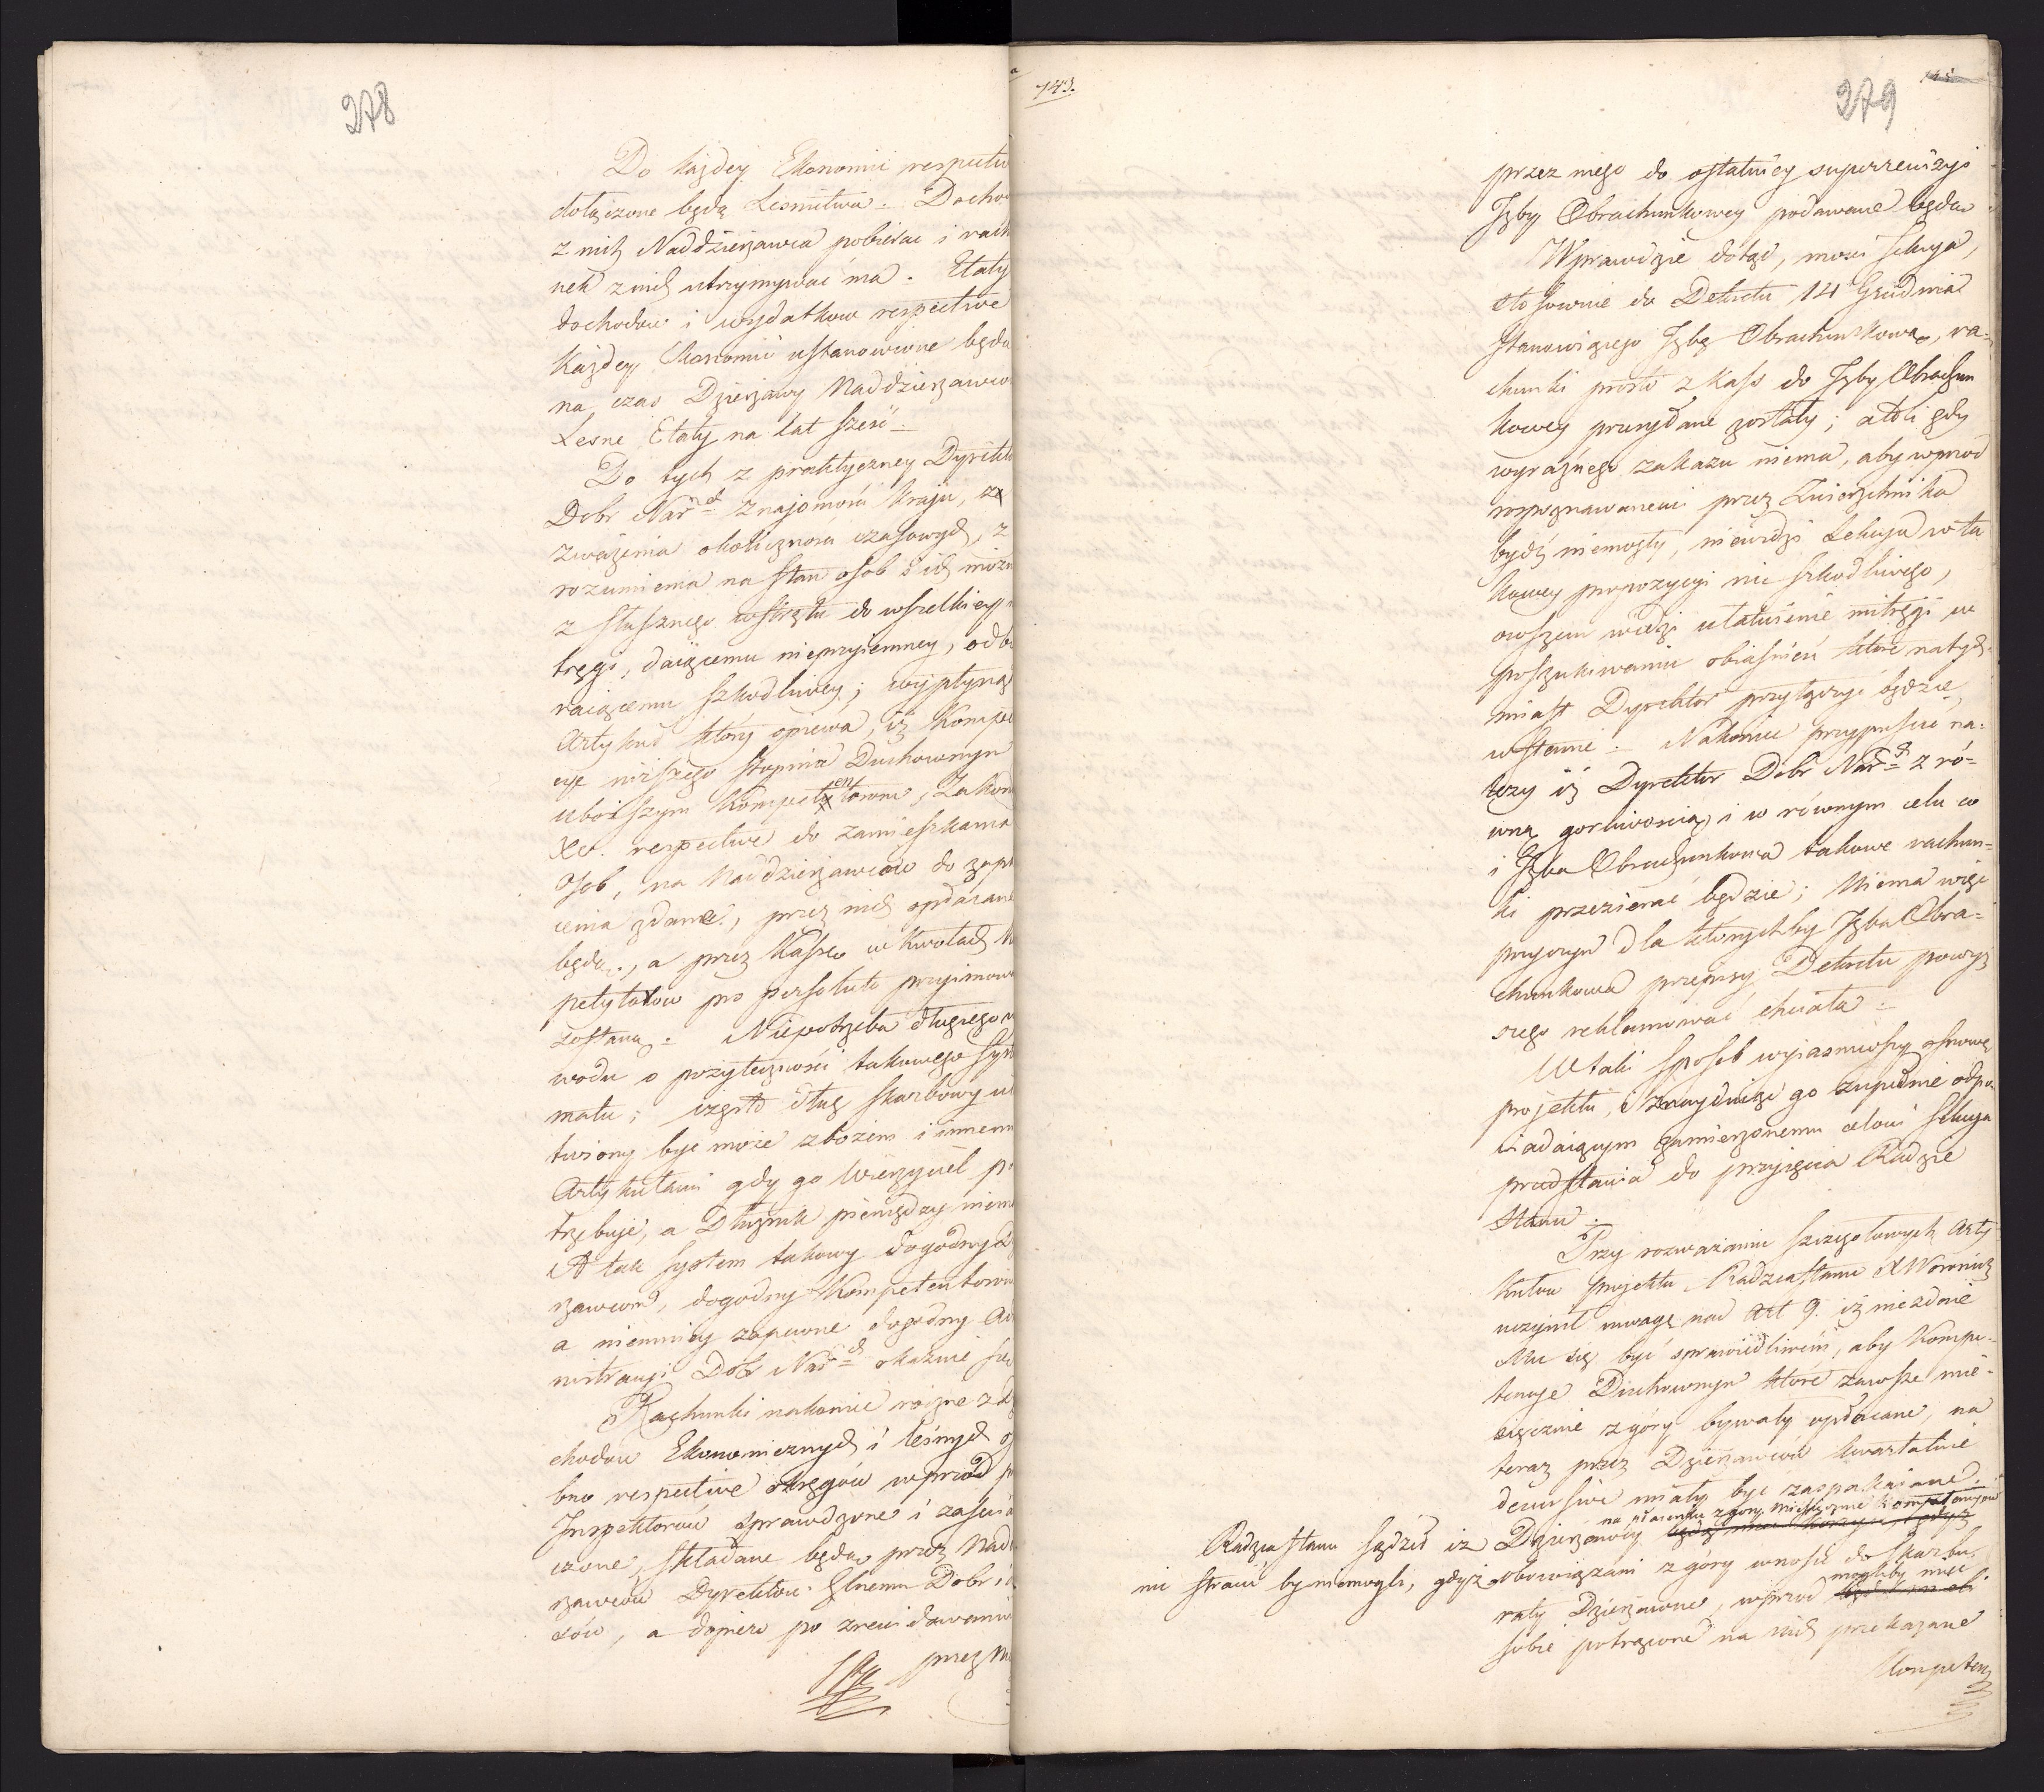 278
Do każdey Ekonomii respectiv
dołączone będą Lesnictwa. Docho
z nich Naddzierżawca pobierac i rach
nek z nich utrzymywać ma. Etaty
dochodow i wydatkow respective
każdey Ekonomii ustanowione będą
na czas Dzierżawy Naddzierżawcow
Lesne Etaty na lat sześć
Do tych z praktyczney Dyrekto
Dobr Nar. ch znajomości kraju, z
zważenia okoliczności czasowych, z
rozumienia na stan osob i ich możn
z słusznego wstrętu do wszelkiey
tręgi, daiącemu nieprzyiemney, odbi
raiącemu szkodliwey; wypłynął
Artykuł który opiewa, iż Kompet
cye niższego stopnia Duchownym
uboższym Kompetentom, Zakon
Xc. respective do zamieszkania
Osob, na Naddzierżawcow do zapł
cenia zdane, przez nich opłacane
będą, a przez Kassę w kwotach
petytatow pro persoluto przyimowa
zostaną. Niepotrzeba długiego
wodu o pożyteczności takowego syst
matu; często dług skarbowy
twiony być może zbożem i innemi
Artykułami gdy go Wierzyciel p
trzebuje, a Dłużnik pieniędzy niema
A tak system takowy dogodny
żawcom, dogodny Kompetentowi
a niemniey zapewne dogodny Ad
nistracyi Dobr Nar. ch okazuie się
Rachunki nakoniec roczne z d
chodow Ekonomicznych i leśnych o
bno respective okręgów wprzód p
Inspektorów sprawdzone i zaświa
czone, składane będą przez Nad
żawców Dyrektorowi Glnemu Dobr i
sów, a dopiero po zrewidowaniu
przez n
143.
279
przez niego do ostatniey superrewizyi
Izby Obrachunkowey podawane będą
Wprawdzie dotąd, mowi Sekcya,
stosownie do Dekretu 14 Grudnia
stanowiącego Izbę Obrachunkową, ra-
chunki prosto z Kass do Izby Obrachun
kowey przesyłane zostały; atoli gdy
wyraźnego zakazu niema, aby wprzod
rozpoznawanemi przez Zwierzchnika
bydź niemogły, niewidzi Sekcya w ta
kowey propozycyi nic szkodliwego,
owszem widzi ułatwienie mitręgi w
poszukiwaniu obiaśnień które natych-
miast Dyrektor przyłączyć będzie
w stanie. Nakoniec przypuscic na-
leży iż Dyrektor Dobr Nar. ch z ró-
wną gorliwością i w równym celu co
i Izba Obrachunkowa takowe rachun-
ki przezierać będzie; Niema więc
przyczyn dla których by Izba Obra-
chunkowa przepisy Dekretu powyż
szego reklamować chciała.
W taki sposob wyiasniwszy osnowę
projektu, i znayduiąc go zupełnie odpo
wiadaiącym zamierzonemu celowi Sekcya
przedstawia do przyięcia Radzie
Stanu.
Przy rozważaniu szczegołowych Arty
kułow projektu Radzca Stanu X Woronicz
uczynił uwagę nad Art 9. iż nie zdaie
Mu się być sprawiedliwem, aby Kompe-
tencye Duchownym które zawsze mie-
sięcznie z góry bywały opłacane, na
teraz przez Dzierżawców kwartalnie
decursive miały być zaspakaiane.
na płaceniu z góry miesięcznie kompetencyow
Radzca Stanu sądził iż Dzierżawcy
nic stracić by niemogli, gdyż obowiązani z góry wnosić do skarbu
raty Dzierżawne, wprzod mogliby mieć
sobie potrącone na nich przekazane
Kompeten